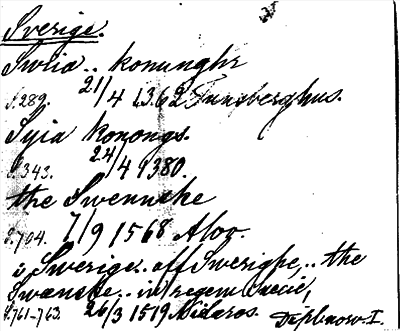 Sverige.
Swia.. konunghr
S.289. 21/4 1362 Tunsberghus.
Syia konongs.
S.343. 24/4 1380.
the Swenneske
S.704. 7/9 1568 Aloo.
i Swerige.. off Swerighe,.. the
Swenske.. in regem
S.761-763. 26/3 1519 Nidaros.